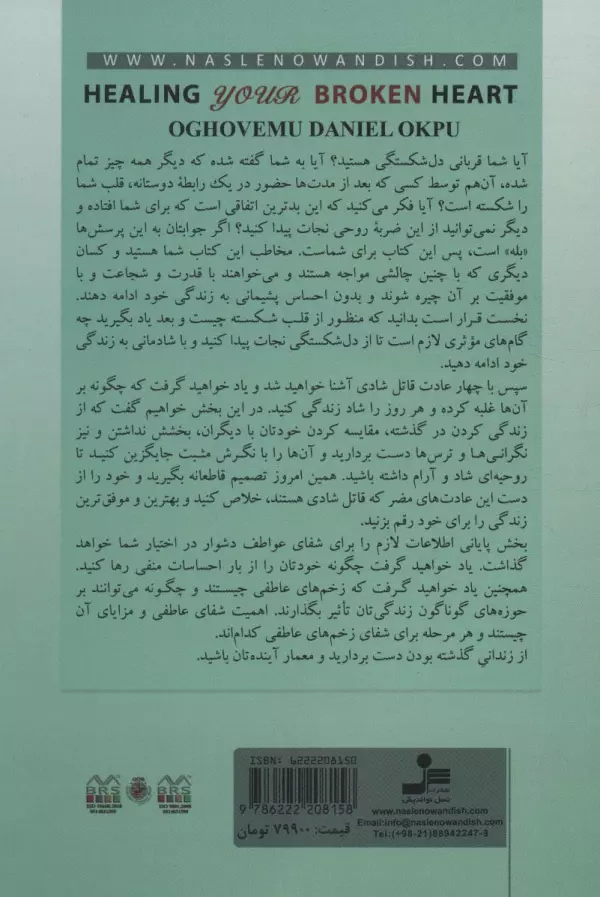 WWW.NASLENOWANDISH.COM
HEALING YOUR BROKEN HEART
OGHOVEMU DANIEL OKPU
آیا شما قربانی دل‌شکستگی هستید؟ آیا به شما گفته شده که دیگر همه چیز تمام
شده، آن‌هم توسط کسی که بعد از مدت‌ها حضور در یک رابطهٔ دوستانه، قلب شما
را شکسته است؟ آیا فکر می‌کنید که این بدترین اتفاقی است که برای شما افتاده و
دیگر نمی‌توانید از این ضربهٔ روحی نجات پیدا کنید؟ اگر جوابتان به این پرسش‌ها
«بله» است، پس این کتاب برای شماست. مخاطب این کتاب شما هستید و کسان
دیگری که با چنین چالشی مواجه هستند و می‌خواهند با قدرت و شجاعت و با
موفقیت بر آن چیره شوند و بدون احساس پشیمانی به زندگی خود ادامه دهند.
نخست قرار است بدانید که منظور از قلب شکسته چیست و بعد یاد بگیرید چه
گام‌های مؤثری لازم است تا از دل‌شکستگی نجات پیدا کنید و با شادمانی به زندگی
خود ادامه دهید.
سپس با چهار عادت قاتل شادی آشنا خواهید شد و یاد خواهید گرفت که چگونه بر
آن‌ها غلبه کرده و هر روز را شاد زندگی کنید. در این بخش خواهیم گفت که از
زندگی کردن در گذشته، مقایسه کردن خودتان با دیگران، بخشش نداشتن و نیز
نگرانی‌ها و ترس‌ها دست بردارید و آن‌ها را با نگرش مثبت جایگزین کنید تا
روحیه‌ای شاد و آرام داشته باشید. همین امروز تصمیم قاطعانه بگیرید و خود را از
دست این عادت‌های مضر که قاتل شادی هستند، خلاص کنید و بهترین و موفق‌ترین
زندگی را برای خود رقم بزنید.
بخش پایانی اطلاعات لازم را برای شفای عواطف دشوار در اختیار شما خواهد
گذاشت. یاد خواهید گرفت چگونه خودتان را از بار احساسات منفی رها کنید.
همچنین یاد خواهید گرفت که زخم‌های عاطفی چیستند و چگونه می‌توانند بر
حوزه‌های گوناگون زندگی‌تان تأثیر بگذارند. اهمیت شفای عاطفی و مزایای آن
چیستند و هر مرحله برای شفای زخم‌های عاطفی کدام‌اند.
از زندانیِ گذشته بودن دست بردارید و معمار آینده‌تان باشید.
ISBN: 6222208150
9 786222 208158
قیمت: ۷۹۹۰۰ تومان
انتشارات
نسل نواندیش
www.naslenowandish.com
Email:info@naslenowandish.com
Tel:(+98-21)88942247-9
BRS
BRS